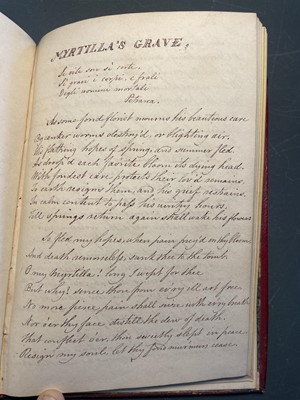 MYRTILLA'S GRAVE,
Si
Si gravi i corpi, e frali
Degli uomini mortali
Petrarca.
As some fond florist mourns his beauteous care
By canker worms destroy'd, or blighting air.
His flatt'ring hopes of spring, and summer fled
As droop'd each favorite bloom its dying head.
With fondest care protects their lov'd remains.
To earth resigns them, and his grief restrains.
In calm content to pass his wintry hours
Till springs return again shall wake his flowers
So fled my hopes when pain prey'd on thy bloom
And death remorseless, sunk thee to the tomb.
O my Myrtilla! long I wept for thee
But why? since thou from ev'ry ill art free
No more fierce pain shall with ev'ry breath
Nor o'er thy face distill the dew of death.
That conflict o'er, thou sweetly slept in peace
Resign my soul let thy fond murmurs cease.